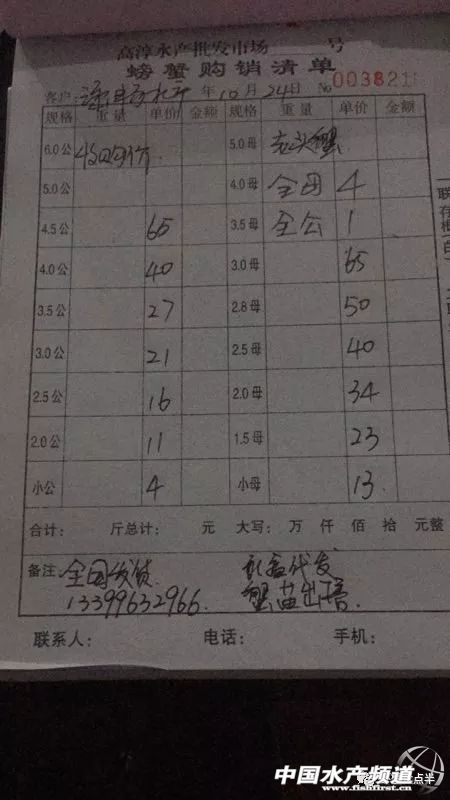 高淳水产批发市场 号
螃蟹购销清单
客户: 年 10 月 24 日 No 003821
规格 重量 单价 金额 规格 重量 单价 金额
6.0公 5.0母 老头蟹
5.0公 4.0母 全母 4
4.5公 65 3.5母 全公 1
4.0公 40 3.0母 65
3.5公 27 2.8母 50
3.0公 21 2.5母 40
2.5公 16 2.0母 34
2.0公 11 1.5母 23
小公 4 小母 13
合计: 斤总计: 元 大写: 万 仟 佰 拾 元整
备注: 全国发货 代发
13399632966 蟹苗出塘
联系人: 电话: 手机:
一联
存根
白
中国水产频道
www.fishfirst.cn
点半